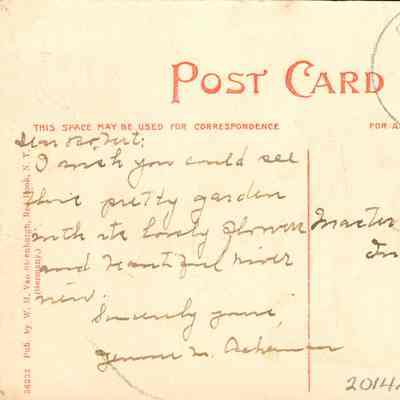 POST CARD
THIS SPACE MAY BE USED FOR CORRESPONDENCE
FOR A
Dear Robert:
I wish you could see
this pretty garden
with its lovely flowers
and beautiful river
view.
Sincerely yours,
Master
36232 Pub. by W. H. Van Steenburgh, Red Hook, N. Y.
(Germany.)
2014